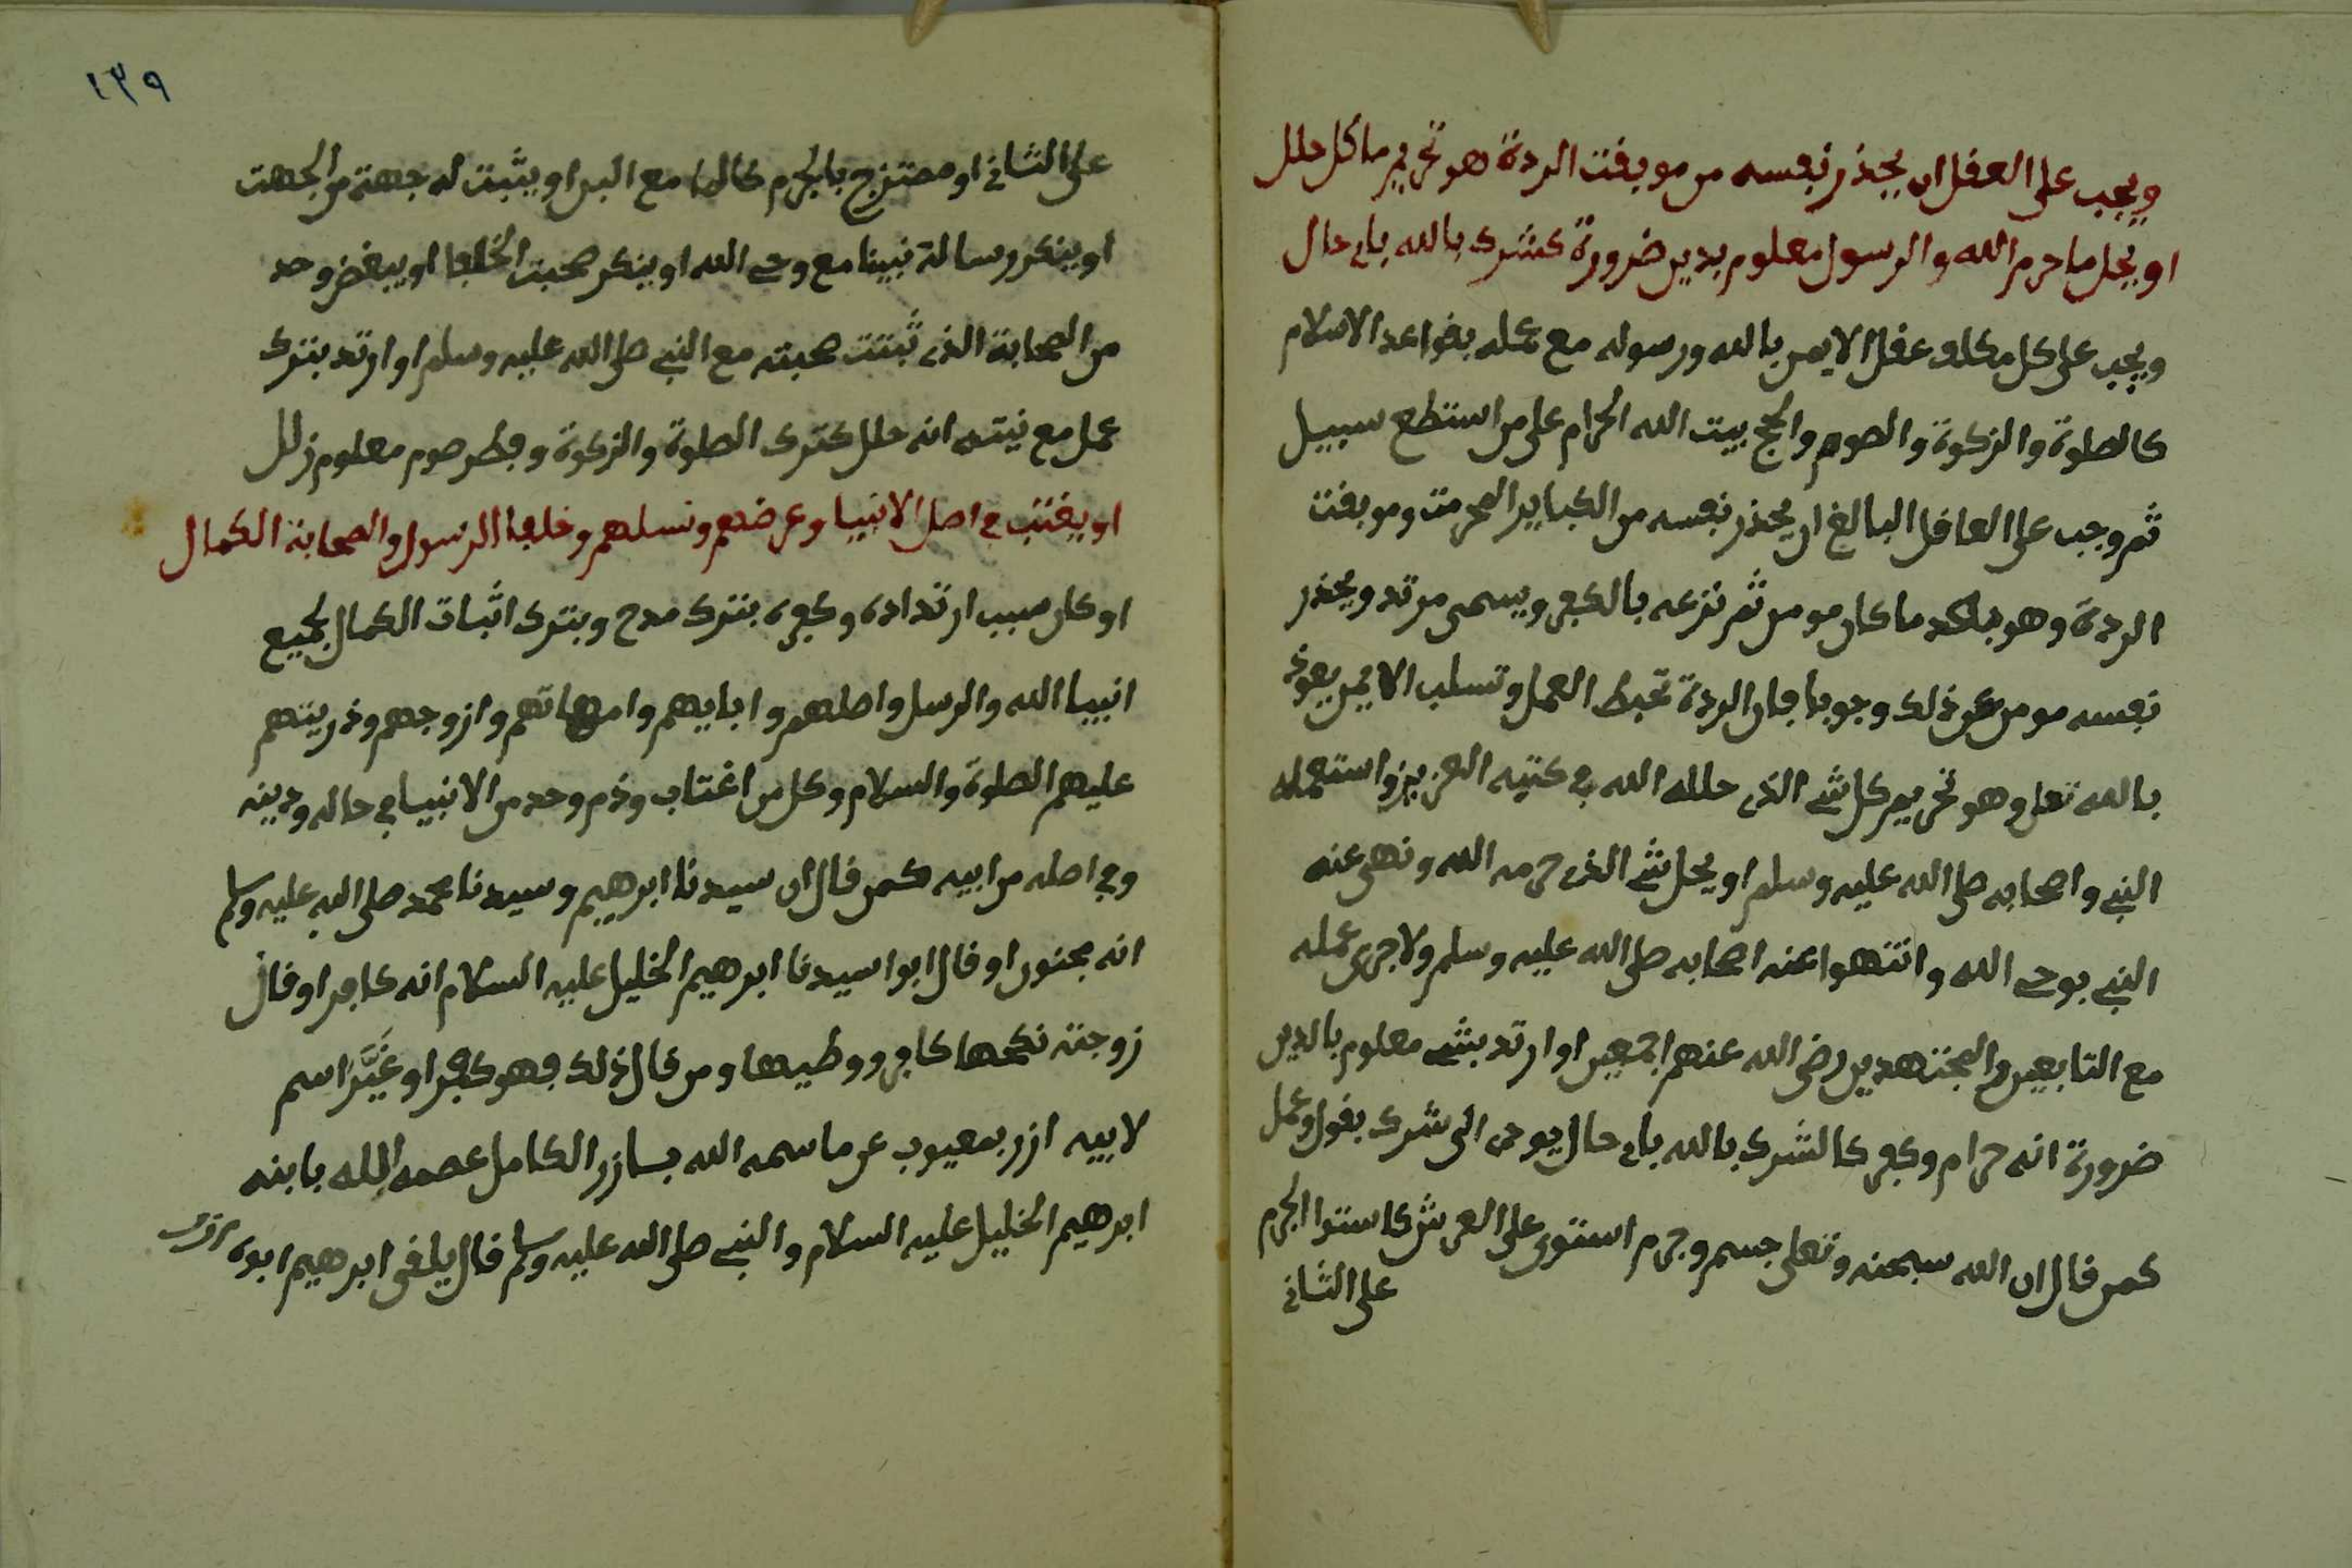 ويجب على العقل ان يحذر نفسه من موبقت الردة هو تحريم ما كل حلل
او يحل ما حرم الله والرسول معلوم بدين ضرورة كشرك بالله باى حال
ويجب على كل مكلف عقل الايمن بالله ورسوله مع عمله بقواعد الاسلام
كالصلوة والزكوة والصوم والحج بيت الله الحرام على من استطع سبيل
ثم وجب على العاقل البالغ ان يحذر نفسه من الكباير المحرمت وموبقت
الردة وهو ما كان مومن ثم نزعه بالكفر ويسمى مرتد ويحذر
نفسه مومن عن ذلك وجوبا فان الردة تحبط العمل وتسلب الايمن يعوذ
بالله تعلى وهو تحريم كل شى الذى حلله الله فى كتبه العزيز واستعمله
النبى واصحابه صلى الله عليه وسلم او يحل شى الذى حرمه الله ونهى عنه
النبى بوحى الله وانتهوا عنه اصحابه صلى الله عليه وسلم ولا جرى عمله
مع التابعين والمجتهدين رضى الله عنهم اجمعين او ارتد بشى معلوم بالدين
ضرورة انه حرام وكفر كالشرك بالله باى حال يودى الى شرك بقول وعمل
كمن قال ان الله سبحنه وتعلى جسم وجرم استوى على العرش كاستوا الجرم
على الثانى
١٣٩
على الثانى او ممتزج بالجرم كالما مع البن او يثبت له جهة من الجهت
او ينكر رسالة نبينا مع وحى الله او ينكر صحبت الخلفا او يبغض وحد
من الصحابة الذى ثبتت صحبته مع النبى صلى الله عليه وسلم او ارتد بترك
عمل مع نيته انه حلل كترك الصلوة والزكوة وفطر صوم معلوم زلل
او يغتب فى اصل الانبيا وعرضهم ونسلهم وخلفا الرسول والصحابة الكمال
او كان سبب ارتداده وكفره بترك مدح وبترك اثبات الكمال لجميع
انبيا الله والرسل واصلهم وابايهم وامهاتهم وازوجهم وذريتهم
عليهم الصلوة والسلام وكل من اغتاب وذم وحد من الانبيا فى حاله ودينه
وفى اصله من ابيه كمن قال ان سيدنا ابرهيم وسيدنا محمد صلى الله عليه وسلم
انه مجنون او قال ابوا سيدنا ابرهيم الخليل عليه السلام انه كافر او قال
زوجته نكحها كافر ووطيها ومن قال ذلك فهو كفر او غيّر اسم
لابيه ازر بمعيوب عن ما سمه الله بسازر الكامل عصمه الله بابنه
ابرهيم الخليل عليه السلام والنبى صلى الله عليه وسلم قال يلقى ابرهيم ابوه ازر